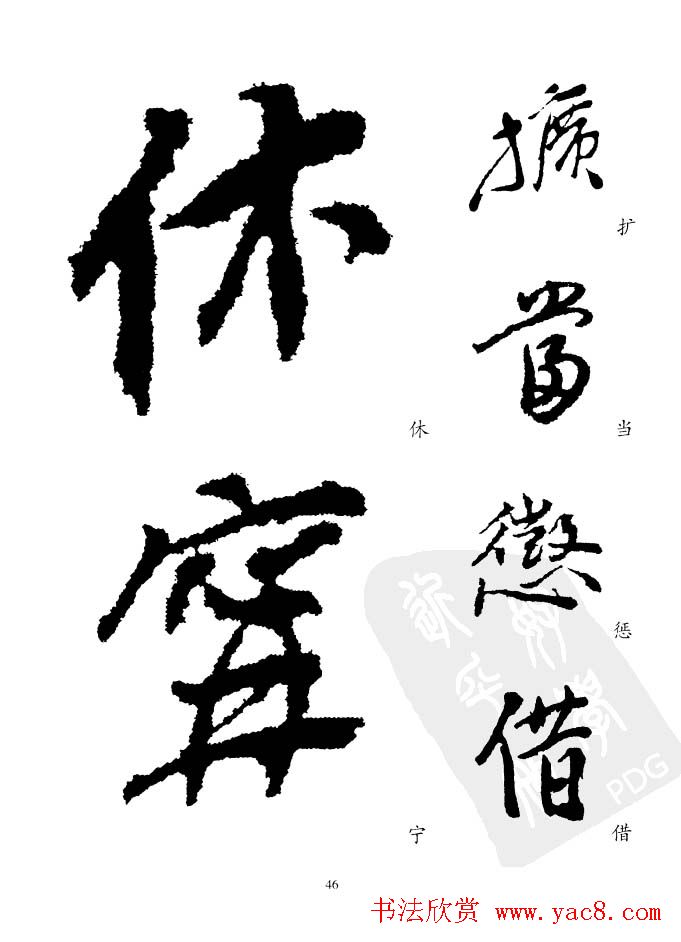 擴
扩
當
当
懲
惩
借
借
休
休
宁
46
书法欣赏 www.yac8.com
PDG